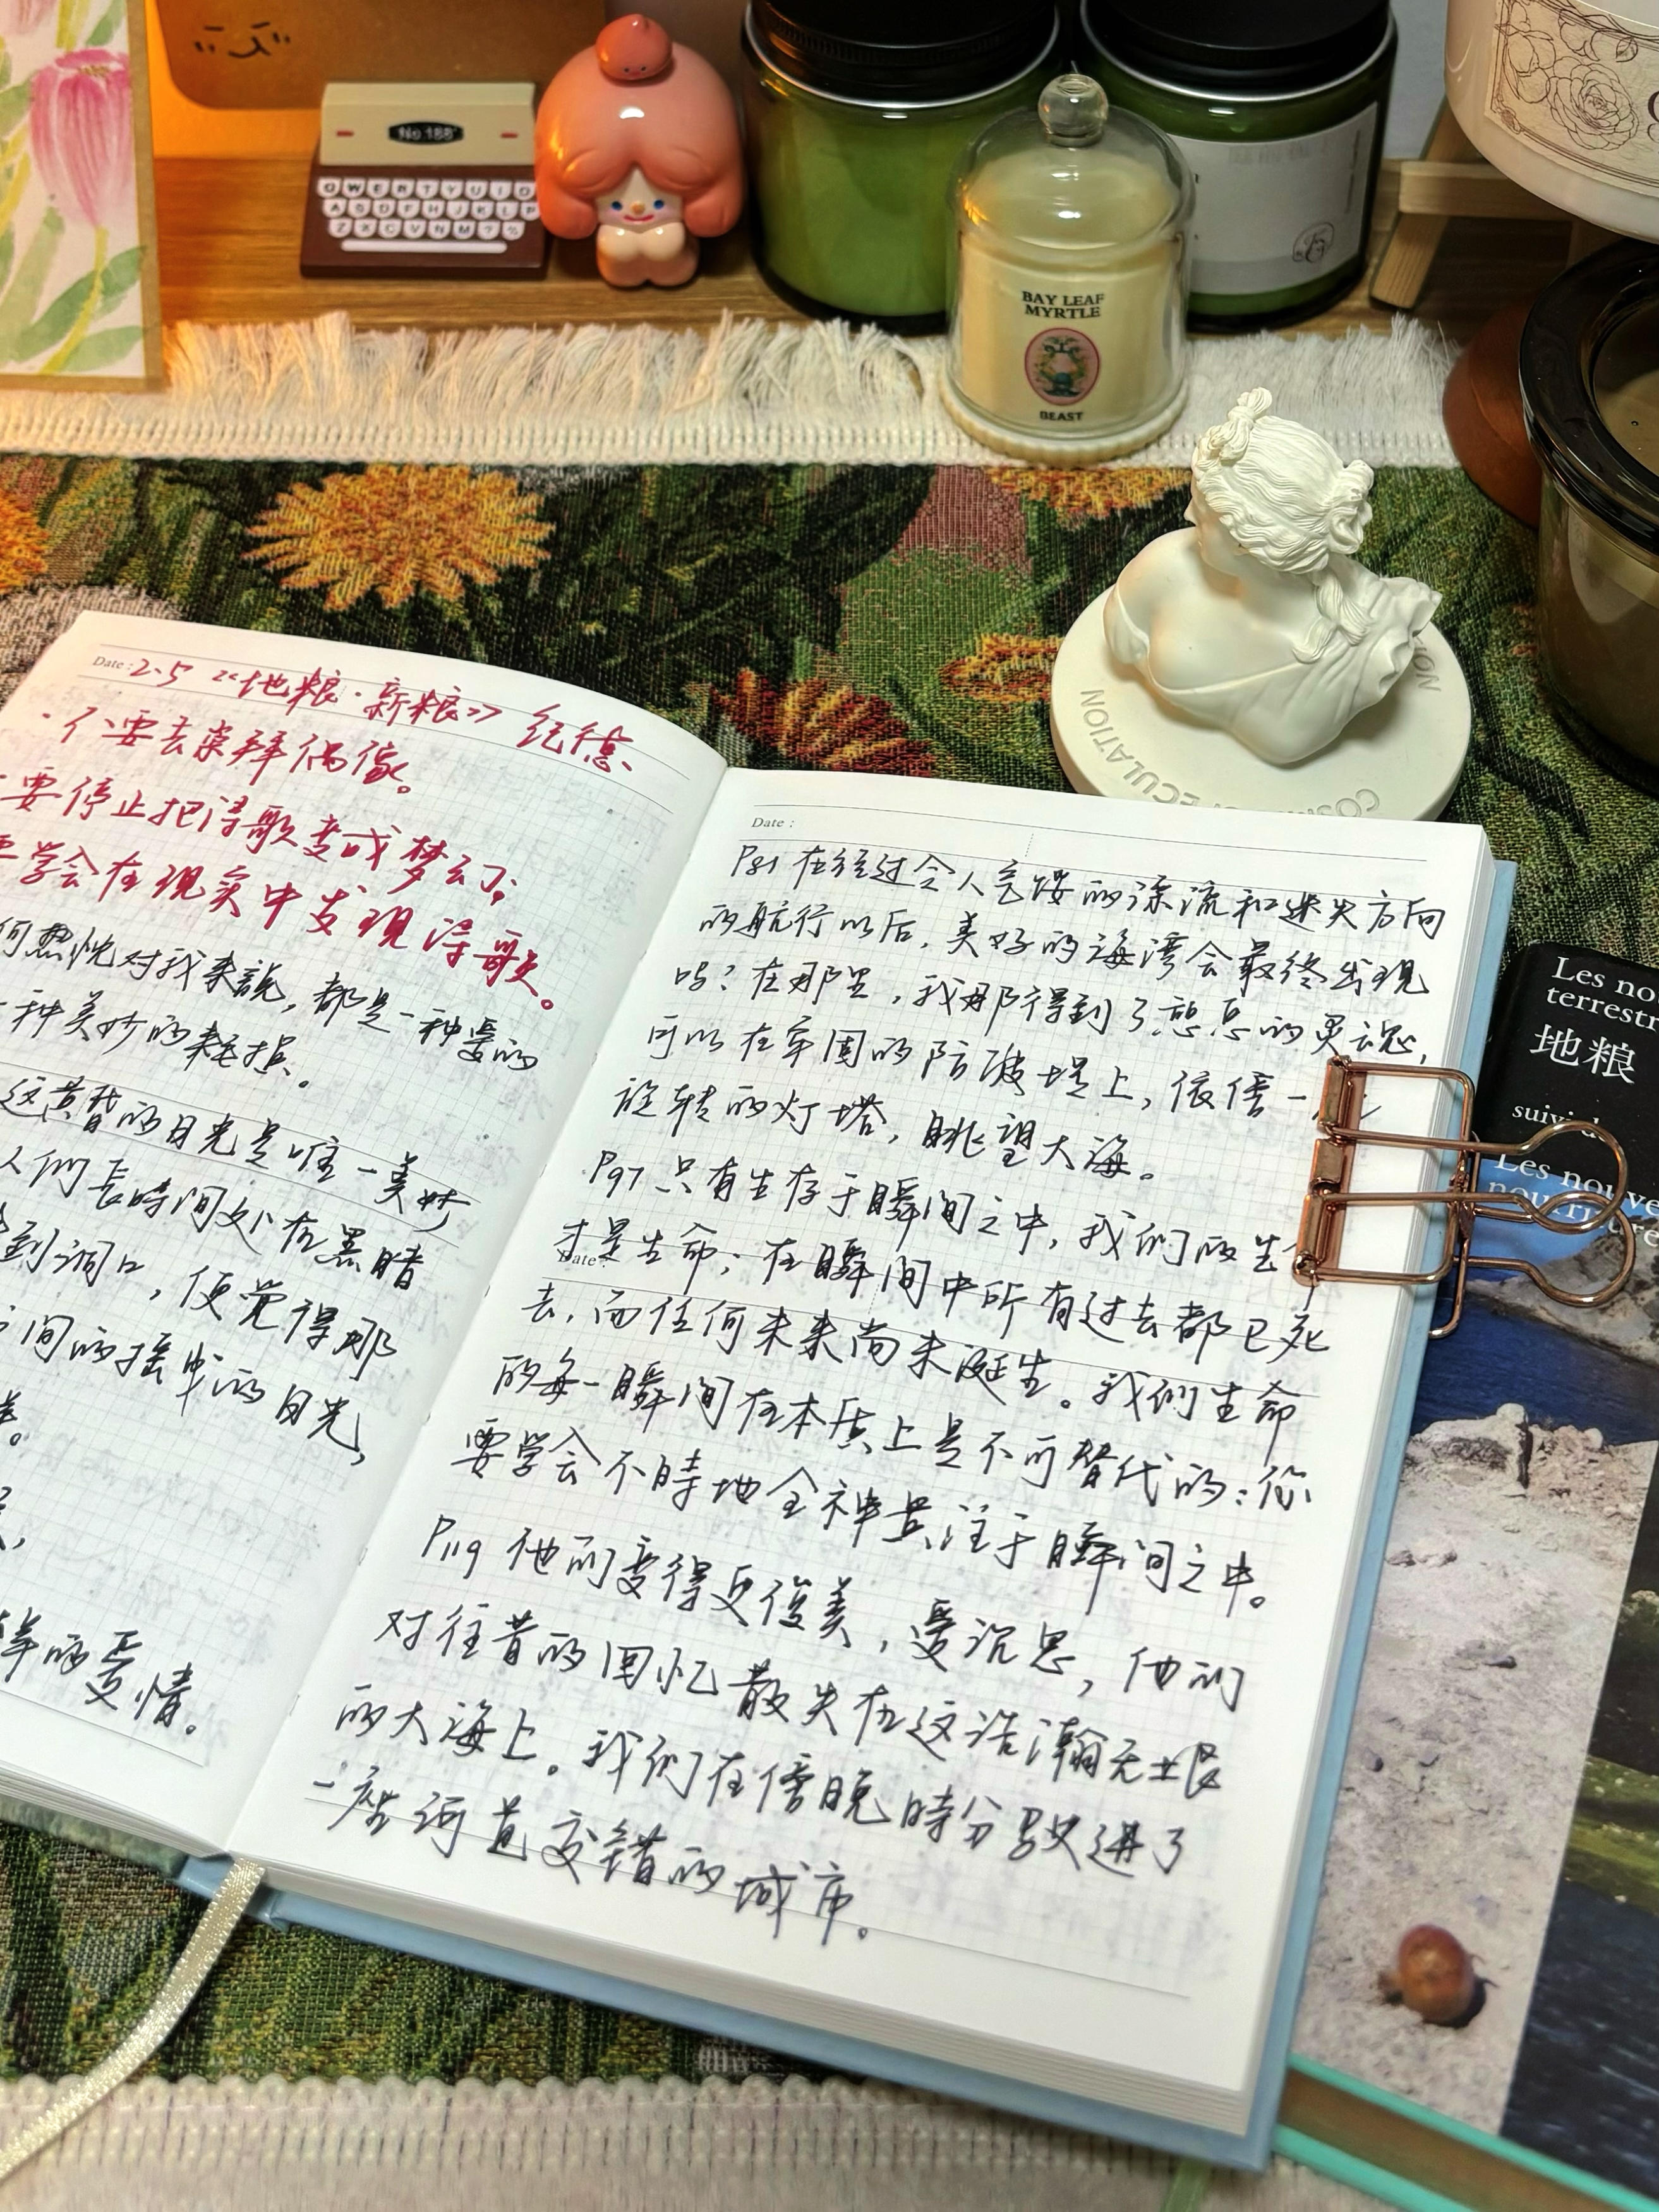 No.188
QWERTYUIO
ASDFHJKLP
ZXCVNM?%
BAY LEAF
MYRTLE
BEAST
Date: 2.5 《地粮·新粮》 纪德
·不要去崇拜偶像。
要停止把诗歌变成梦幻;
要学会在现实中发现诗歌。
何恍惚对我来說，都是一种爱的
一种美妙的耗损。
这黄昏的日光是唯一美妙
人们长時间处在黑暗
到洞口，便觉得那
间的摇曳的日光，
样的爱情。
Date:
P81 在经过令人气馁的漂流和迷失方向
的航行以后，美好的海湾会最终出现
吗？在那里，我那得到了憩息的灵魂，
可以在牢固的防波堤上，依偎一
旋转的灯塔，眺望大海。
P97 只有生存于瞬间之中，我们的生
才是生命；在瞬间中所有过去都已死
Date:
去，而任何未来尚未诞生。我们生命
的每一瞬间在本质上是不可替代的：你
要学会不時地全神贯注于瞬间之中。
P119 他们变得更俊美，爱沉思，他们
对往昔的回忆散失在这浩瀚无垠
的大海上。我们在傍晚時分驶进了
一座河道交错的城市。
Les no
terrestr
地粮
suivi d
Les nouve
nourriture